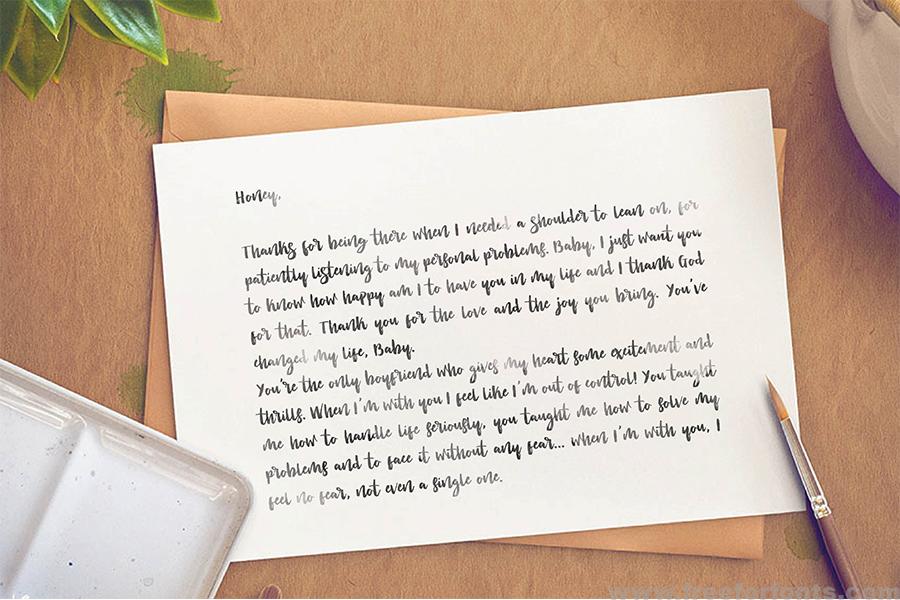 Honey,
Thanks for being there when I needed a shoulder to lean on, for
patiently listening to my personal problems. Baby, I just want you
to know how happy am I to have you in my life and I thank God
for that. Thank you for the love and the joy you bring. You've
changed my life, Baby.
You're the only boyfriend who gives my heart some excitement and
thrills. When I'm with you I feel like I'm out of control! You taught
me how to handle life seriously, you taught me how to solve my
problems and to face it without any fear... when I'm with you, I
feel no fear, not even a single one.
www.freeforfonts.com